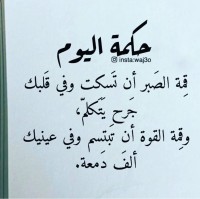 حكمة اليوم
insta:waj3o
قِمة الصَبر أن تَسكت وفي قَلبك
جَرح يَتَكلمّ،
وقِمة القوة أن تَبتَسم وفي عينيك
ألفَ دَمعة.